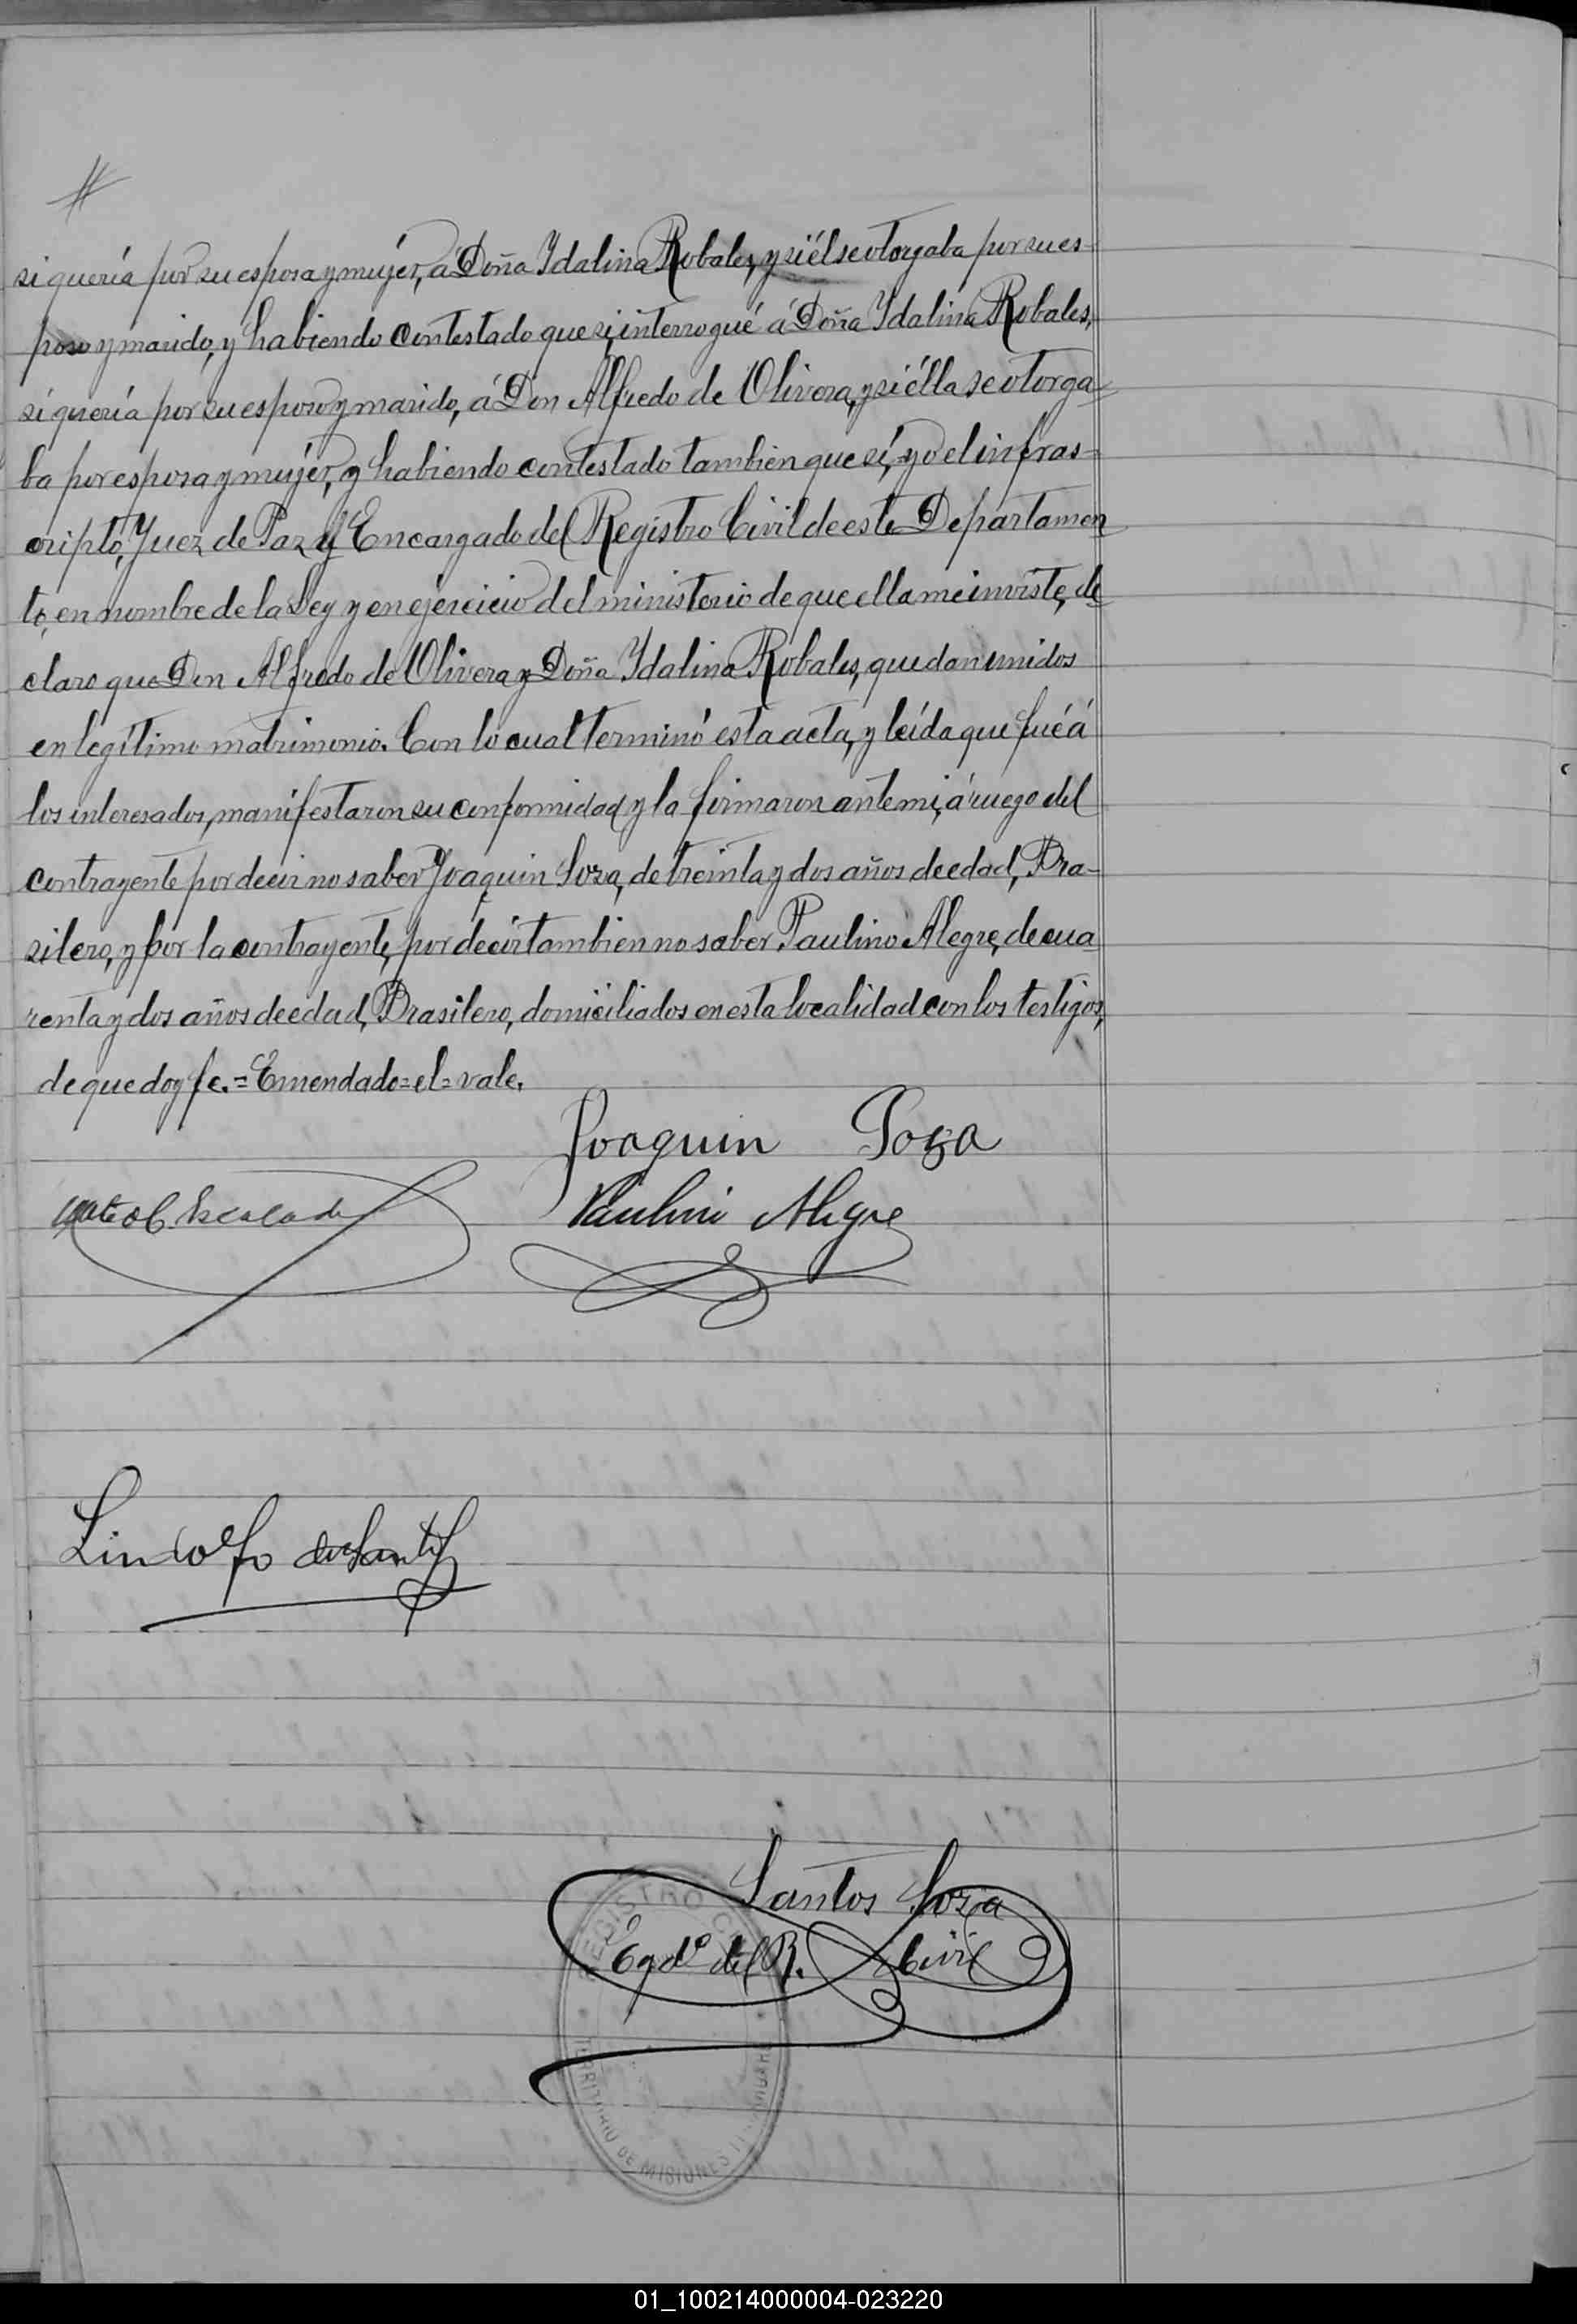 si quería por su esposa y mujer, á Doña Ydalina Robales, y si él se otorgaba por su es-
poso y marido, y habiendo contestado que si, interrogué á Doña Ydalina Robales,
si quería por su esposo y marido, á Don Alfredo de Olivera, y si élla se otorga-
ba por esposa y mujer, y habiendo contestado tambien que sí, yo el infras-
cripto, Juez de Paz y Encargado del Registro Civil de este Departamen
to, en nombre de la Ley y en ejercicio del ministerio de que ella me inviste, de
claro que Don Alfredo de Olivera y Doña Ydalina Robales, quedan unidos
en legítimo matrimonio. Con lo cual terminó esta acta, y leída que fué á
los interesados, manifestaron su conformidad y la firmaron ante mi, á ruego del
contrayente por decir no saber Joaquin Soza, de treinta y dos años de edad, Bra-
silero, y por la contrayente, por decir tambien no saber Paulino Alegre, de cua
renta y dos años de edad, Brasilero, domiciliados en esta localidad con los testigos,
de que doy fe.=Emendado=el=vale.
Joaquin Soza
Paulino Alegre
Lindolfo
Santos Soza
Egdo del R. Civil
REGISTRO
TERRITORIO DE MISIONES
01_100214000004-023220